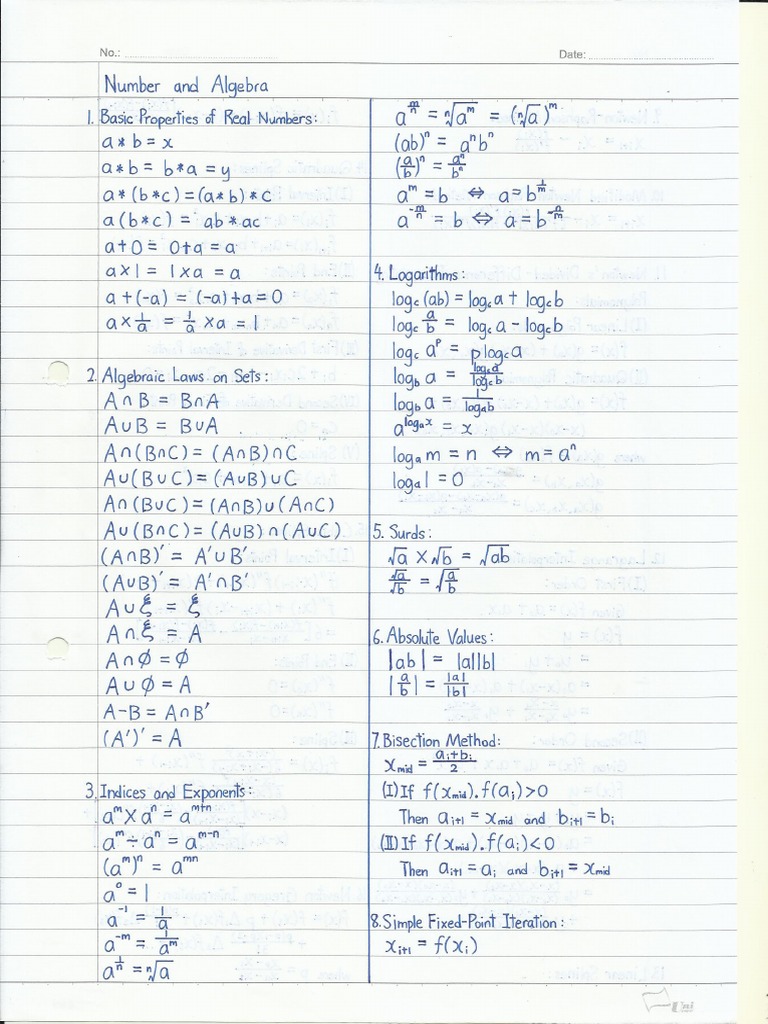 No.:
Date:
Number and Algebra
1. Basic Properties of Real Numbers:
a * b = x
a * b = b * a = y
a * (b * c) = (a * b) * c
a (b * c) = ab * ac
a + 0 = 0 + a = a
a × 1 = 1 × a = a
a + (-a) = (-a) + a = 0
a × 1/a = 1/a × a = 1
2. Algebraic Laws on Sets:
A ∩ B = B ∩ A
A ∪ B = B ∪ A
A ∩ (B ∩ C) = (A ∩ B) ∩ C
A ∪ (B ∪ C) = (A ∪ B) ∪ C
A ∩ (B ∪ C) = (A ∩ B) ∪ (A ∩ C)
A ∪ (B ∩ C) = (A ∪ B) ∩ (A ∪ C)
(A ∩ B)′ = A′ ∪ B′
(A ∪ B)′ = A′ ∩ B′
A ∪ ξ = ξ
A ∩ ξ = A
A ∩ ∅ = ∅
A ∪ ∅ = A
A − B = A ∩ B′
(A′)′ = A
3. Indices and Exponents:
a^m × a^n = a^(m+n)
a^m ÷ a^n = a^(m−n)
(a^m)^n = a^(mn)
a^0 = 1
a^(-1) = 1/a
a^(-m) = 1/a^m
a^(1/n) = ⁿ√a
a^(m/n) = ⁿ√(a^m) = (ⁿ√a)^m
(ab)^n = a^n b^n
(a/b)^n = a^n/b^n
a^m = b ⇔ a = b^(1/m)
a^(-m/n) = b ⇔ a = b^(-n/m)
4. Logarithms:
log_c (ab) = log_c a + log_c b
log_c a/b = log_c a − log_c b
log_c a^p = p log_c a
log_b a = log_c a / log_c b
log_b a = 1 / log_a b
a^(log_a x) = x
log_a m = n ⇔ m = a^n
log_a 1 = 0
5. Surds:
√a × √b = √ab
√a/√b = √(a/b)
6. Absolute Values:
|ab| = |a||b|
|a/b| = |a|/|b|
7. Bisection Method:
x_mid = (a_i + b_i)/2
(I) If f(x_mid).f(a_i) > 0
Then a_(i+1) = x_mid and b_(i+1) = b_i
(II) If f(x_mid).f(a_i) < 0
Then a_(i+1) = a_i and b_(i+1) = x_mid
8. Simple Fixed-Point Iteration:
x_(i+1) = f(x_i)